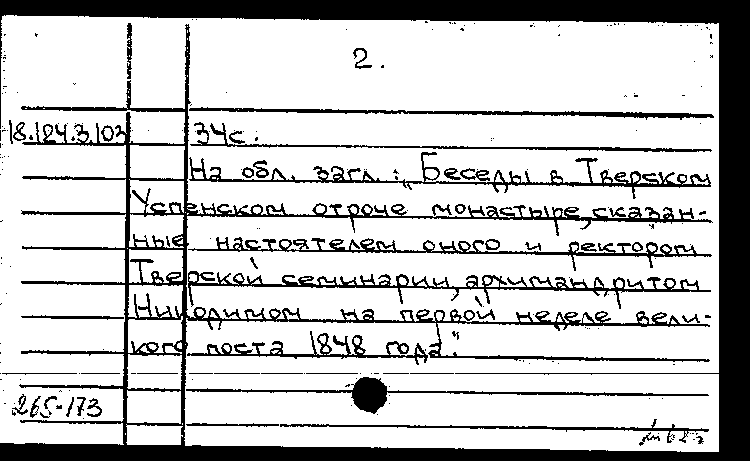 2.
18.124.3.103 34с.
На обл. загл.: „Беседы в Тверском
Успенском отроче монастыре, сказан-
ные настоятелем оного и ректором
Тверской семинарии, архимандритом
Никодимом на первой неделе вели-
кого поста 1848 года".
265-173